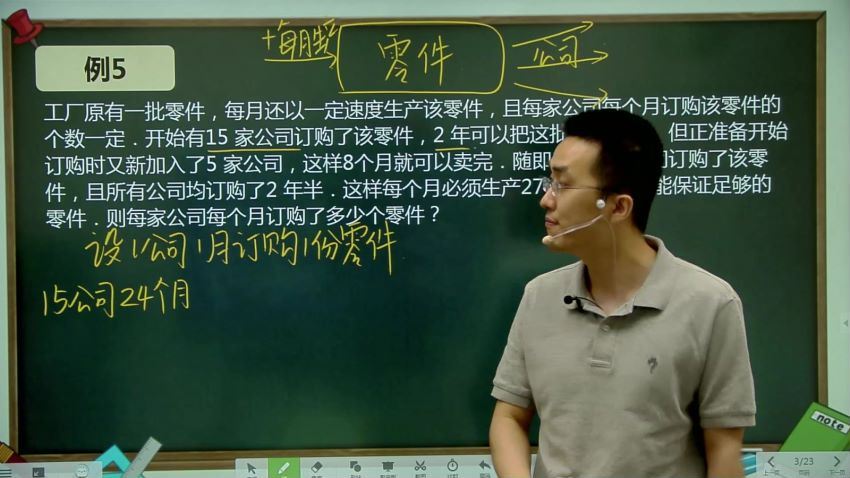 +每月生产
零件
公司
例5
工厂原有一批零件，每月还以一定速度生产该零件，且每家公司每个月订购该零件的
个数一定．开始有15 家公司订购了该零件，2 年可以把这批 但正准备开始
订购时又新加入了5 家公司，这样8个月就可以卖完．随即 订购了该零
件，且所有公司均订购了2 年半．这样每个月必须生产27 能保证足够的
零件．则每家公司每个月订购了多少个零件？
设1公司1月订购1份零件
15公司24个月
note
3/23